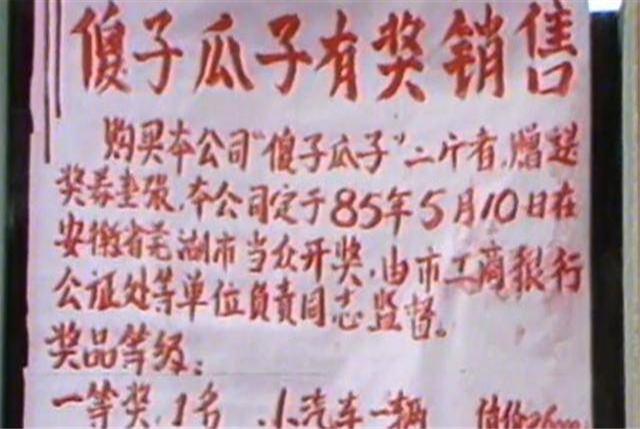 傻子瓜子有奖销售
购买本公司“傻子瓜子”二斤者，赠送
奖券壹張，本公司定于85年5月10日在
安徽省芜湖市当众开奖，由市工商银行
公证处等单位負責同志监督。
奖品等级：
一等奖，1名 小汽车一辆